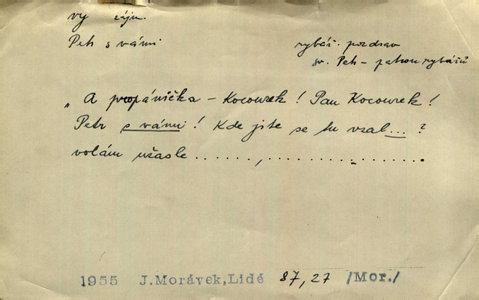 vy zájm.
Petr s vámi
rybář. pozdrav
sv. Petr - patron rybářů
„A propánička - Kocourek! Pan Kocourek!
Petr s vámi! Kde jste se tu vzal...?
volám užasle ......,...............
1955 J.Morávek,Lidé 87,27 /Mor./